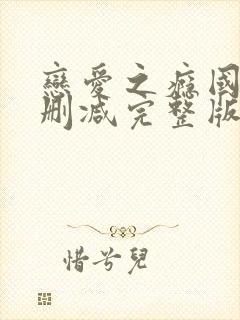 戀愛之癮國
刪減完整版
惜兮兒